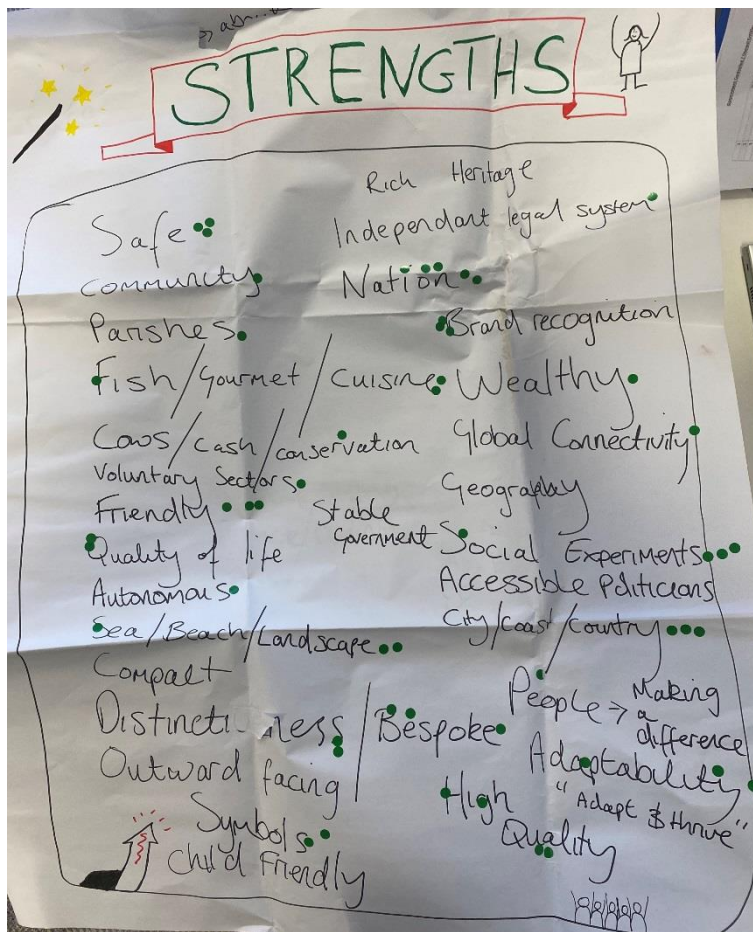 STRENGTHS
Rich Heritage
Independant legal system
Safe
Community
Nation
Parishes
Brand recognition
Fish/Gourmet/Cuisine
Wealthy
Cows/Cash/conservation
Global Connectivity
Voluntary Sectors
Geography
Friendly
Stable
Government
Quality of life
Social Experiments
Autonomous
Accessible Politicians
Sea/Beach/Landscape
City/Coast/Country
Compact
People → Making
a
difference
Distincti ness/Bespoke
Adaptability
Outward facing
"Adapt & thrive"
High
Quality
Symbols
Child Friendly